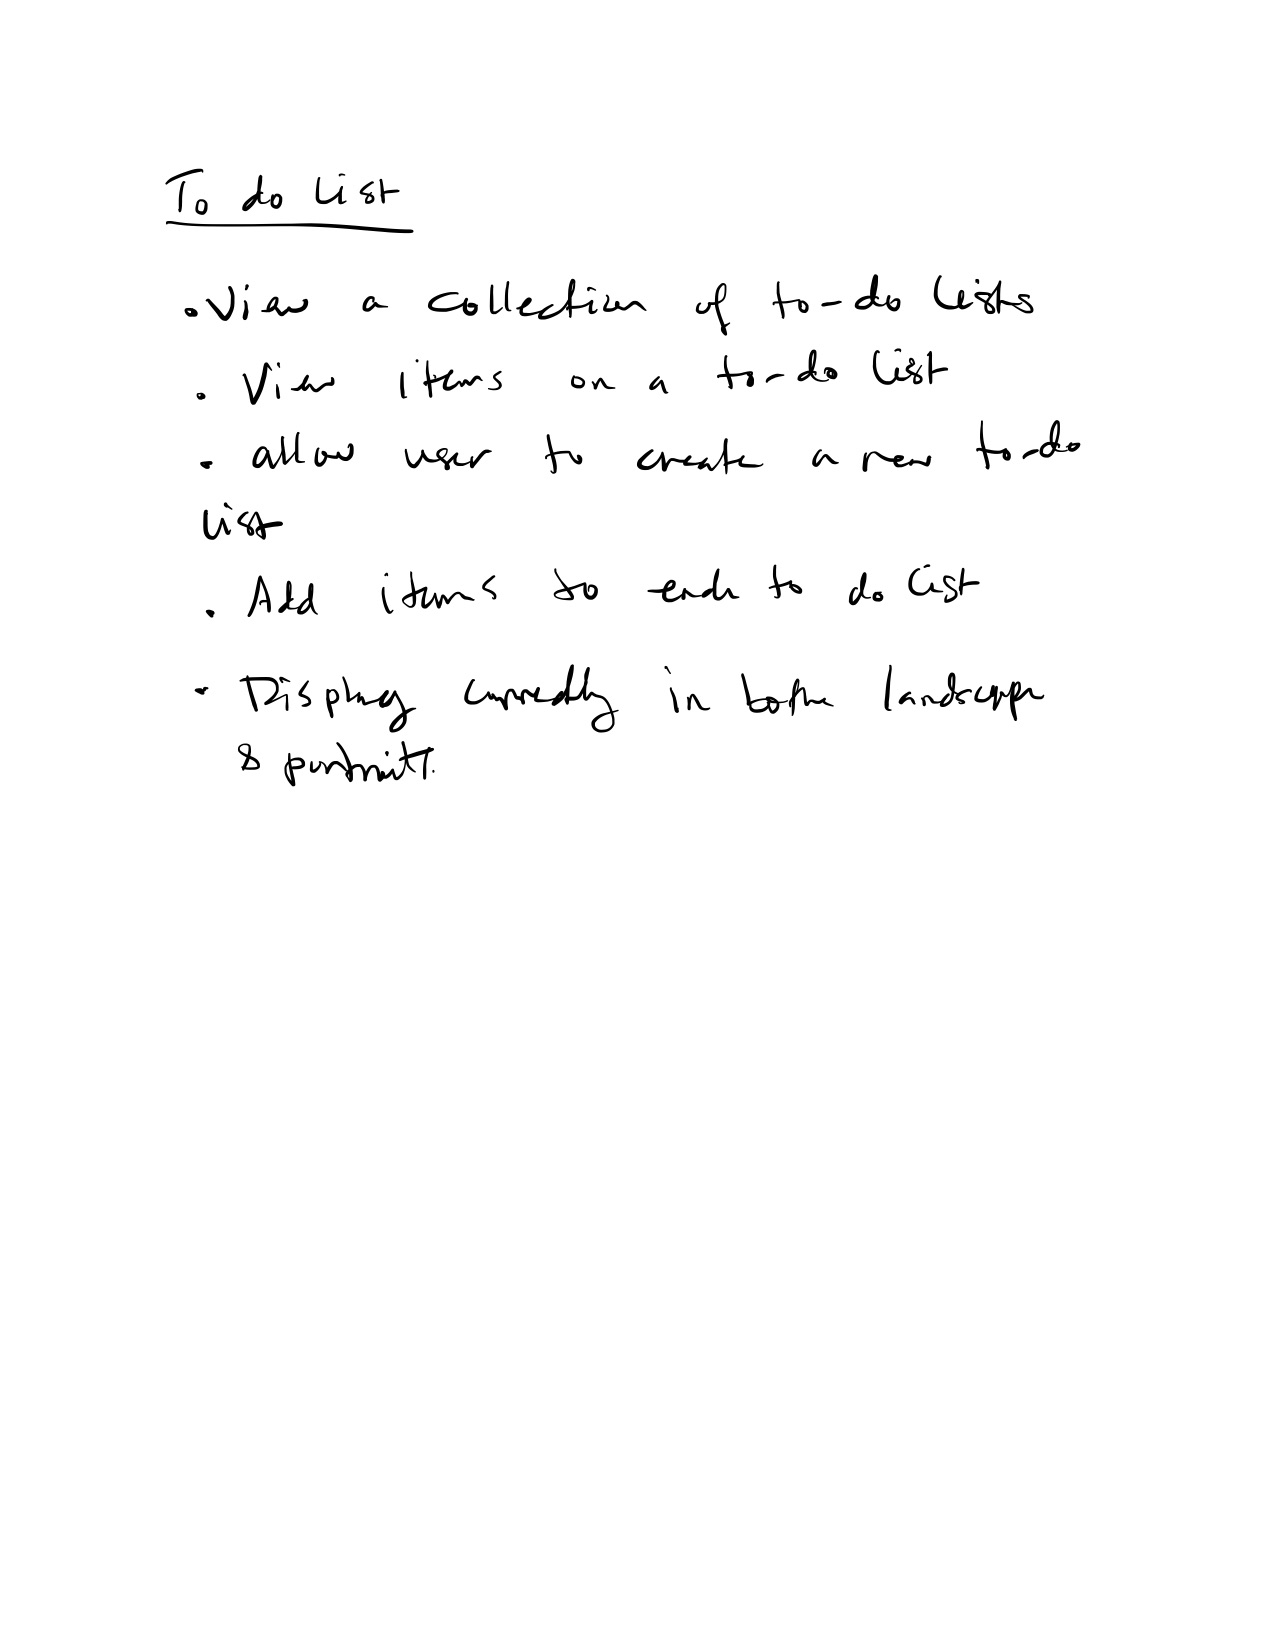 To do List
• View a collection of to-do lists
• View items on a to-do list
• allow user to create a new to-do
list
• Add items to each to do list
• Display correctly in both landscape
& portrait.